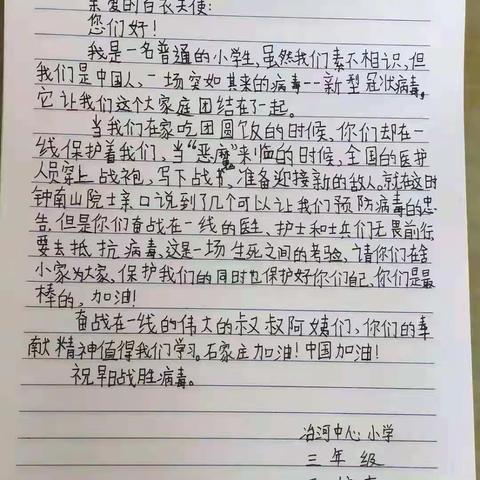 亲爱的白衣天使:
您们好!
我是一名普通的小学生,虽然我们素不相识,但
我们是中国人,一场突如其来的病毒--新型冠状病毒,
它让我们这个大家庭团结在了一起。
当我们在家吃团圆饭的时候,你们却在一
线保护着我们,当“恶魔”来临的时候,全国的医护
人员穿上战袍,写下战书,准备迎接新的敌人。就在这时
钟南山院士亲口说到了几个可以让我们预防病毒的忠
告,但是你们奋战在一线的医生,护士和士兵们无畏前行
要去抵抗病毒,这是一场生死之间的考验,请你们在舍
小家为大家,保护我们的同时也保护好你们自己,你们是最
棒的,加油!
奋战在一线的伟大的叔叔阿姨们,你们的奉
献精神值得我们学习。石家庄加油!中国加油!
祝早日战胜病毒。
冶河中心小学
三年级